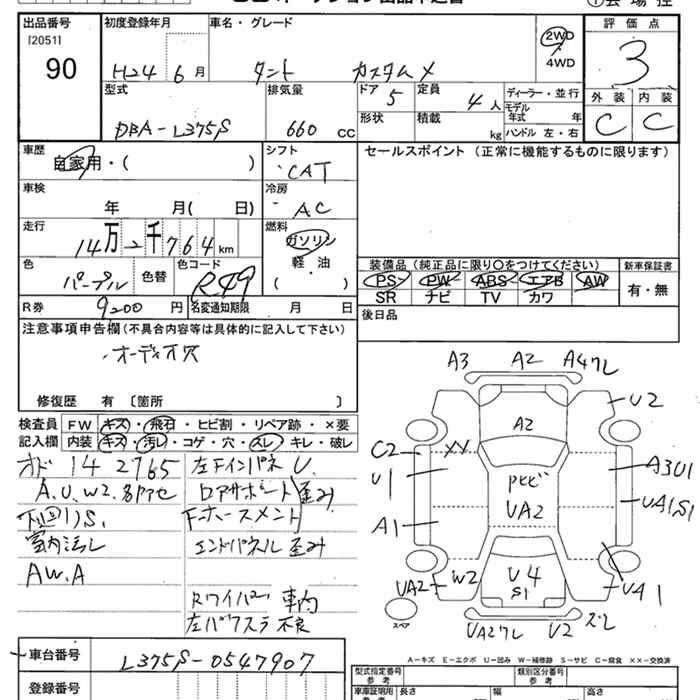 出品番号
[2051]
90
初度登録年月
H24 6月
車名・グレード
タント カスタムX
2WD
・
4WD
評価点
3
外装 内装
C C
型式
DBA-L375S
排気量
660 cc
ドア 5
形状
定員 4人
積載 kg
ディーラー・並行
モデル年式 年
ハンドル 左・右
車歴
自家用・( )
シフト
CAT
セールスポイント (正常に機能するものに限ります)
車検
年 月( 日)
冷房
AC
走行
14万2千764km
燃料
ガソリン
軽・油
( )
色
パープル
色替
色コード
R49
装備品 (純正品に限り○をつけてください)
新車保証書
PS PW ABS エアB AW
SR ナビ TV カワ
有・無
R券 9200円
名変通知期限 月 日
後日品
注意事項申告欄(不具合内容等は具体的に記入して下さい)
・オーディオ穴
修復歴 有〔箇所 〕
検査員
記入欄
FW キズ・飛石・ヒビ割・リペア跡・×要
内装 キズ・汚レ・コゲ・穴・スレ・キレ・破レ
オド 142765
A.U.W2.各所アセ
下廻りS.
室内汚レ
AW.A
左Fインパネ U.
ロアサポート
Fホースメント
歪み
エンドパネル 歪み
Rワイパー 車内
左パワステ不良
A3 A2 A4ワレ
U2
A2
C2
XX
U1
A1
Pヒビ
UA2
A3U1
UA1,S1
UA2
W2
U4
S1
UA1
スペア
UA2ワレ U2 ズレ
A-キズ E-エクボ U-凹み W-補修跡 S-サビ C-腐食 XX-交換済
車台番号
L375S-0547907
登録番号
型式指定番号
参考
類別区分番号
参考
車庫証明用
参考
長さ
幅
高さ